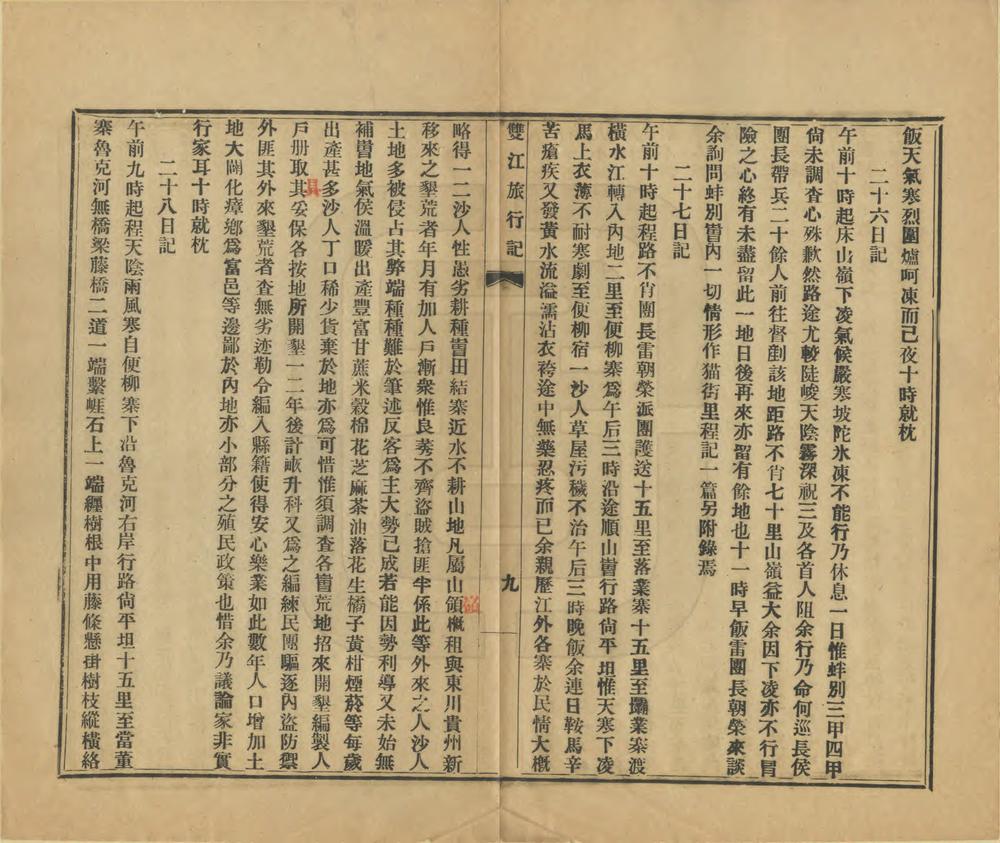 飯天氣寒烈圍爐呵凍而已夜十時就枕
二十六日記
午前十時起床山嶺下凌氣候嚴寒坡陀氷凍不能行乃休息一日惟蚌別三甲四甲
尙未調查心殊歉然路途尤較陡峻天陰霧深祝三及各首人阻余行乃命何巡長侯
團長帶兵二十餘人前往督剷該地距路不肖七十里山嶺益大余因下凌亦不行冒
險之心終有未盡留此一地日後再來亦留有餘地也十一時早飯雷團長朝榮來談
余詢問蚌別甾內一切情形作猫街里程記一篇另附錄焉
二十七日記
午前十時起程路不肖團長雷朝榮派團護送十五里至落業寨十五里至臘業寨渡
橫水江轉入內地二里至便柳寨爲午后三時沿途順山甾行路尙平坦惟天寒下凌
馬上衣薄不耐寒劇至便柳宿一沙人草屋污穢不治午后三時晚飯余連日鞍馬辛
苦瘡疾又發黃水流溢濡沾衣袴途中無藥忍疼而已余親歷江外各寨於民情大槪
雙江旅行記
九
略得一二沙人性愚劣耕種甾田結寨近水不耕山地凡屬山領槪租與東川貴州新
嶺
移來之墾荒者年月有加人戶漸衆惟良莠不齊盜賊搶匪半係此等外來之人沙人
土地多被侵占其弊端種種難於筆述反客爲主大勢已成若能因勢利導又未始無
補甾地氣侯溫暖出產豐富甘蔗米穀棉花芝麻茶油落花生橘子黃柑煙葯等每歲
出產甚多沙人丁口稀少貨棄於地亦爲可惜惟須調查各甾荒地招來開墾編製人
戶册取其妥保各按地所開墾一二年後計畝升科又爲之編練民團驅逐內盜防禦
具
外匪其外來墾荒者查無劣迹勒令編入縣籍使得安心樂業如此數年人口增加土
地大闢化瘴鄕爲富邑等邊鄙於內地亦小部分之殖民政策也惜余乃議論家非實
行家耳十時就枕
二十八日記
午前九時起程天陰雨風寒自便柳寨下沿魯克河右岸行路尙平坦十五里至當董
寨魯克河無橋梁藤橋二道一端繫崕石上一端纒樹根中用藤條懸掛樹枝縱橫絡